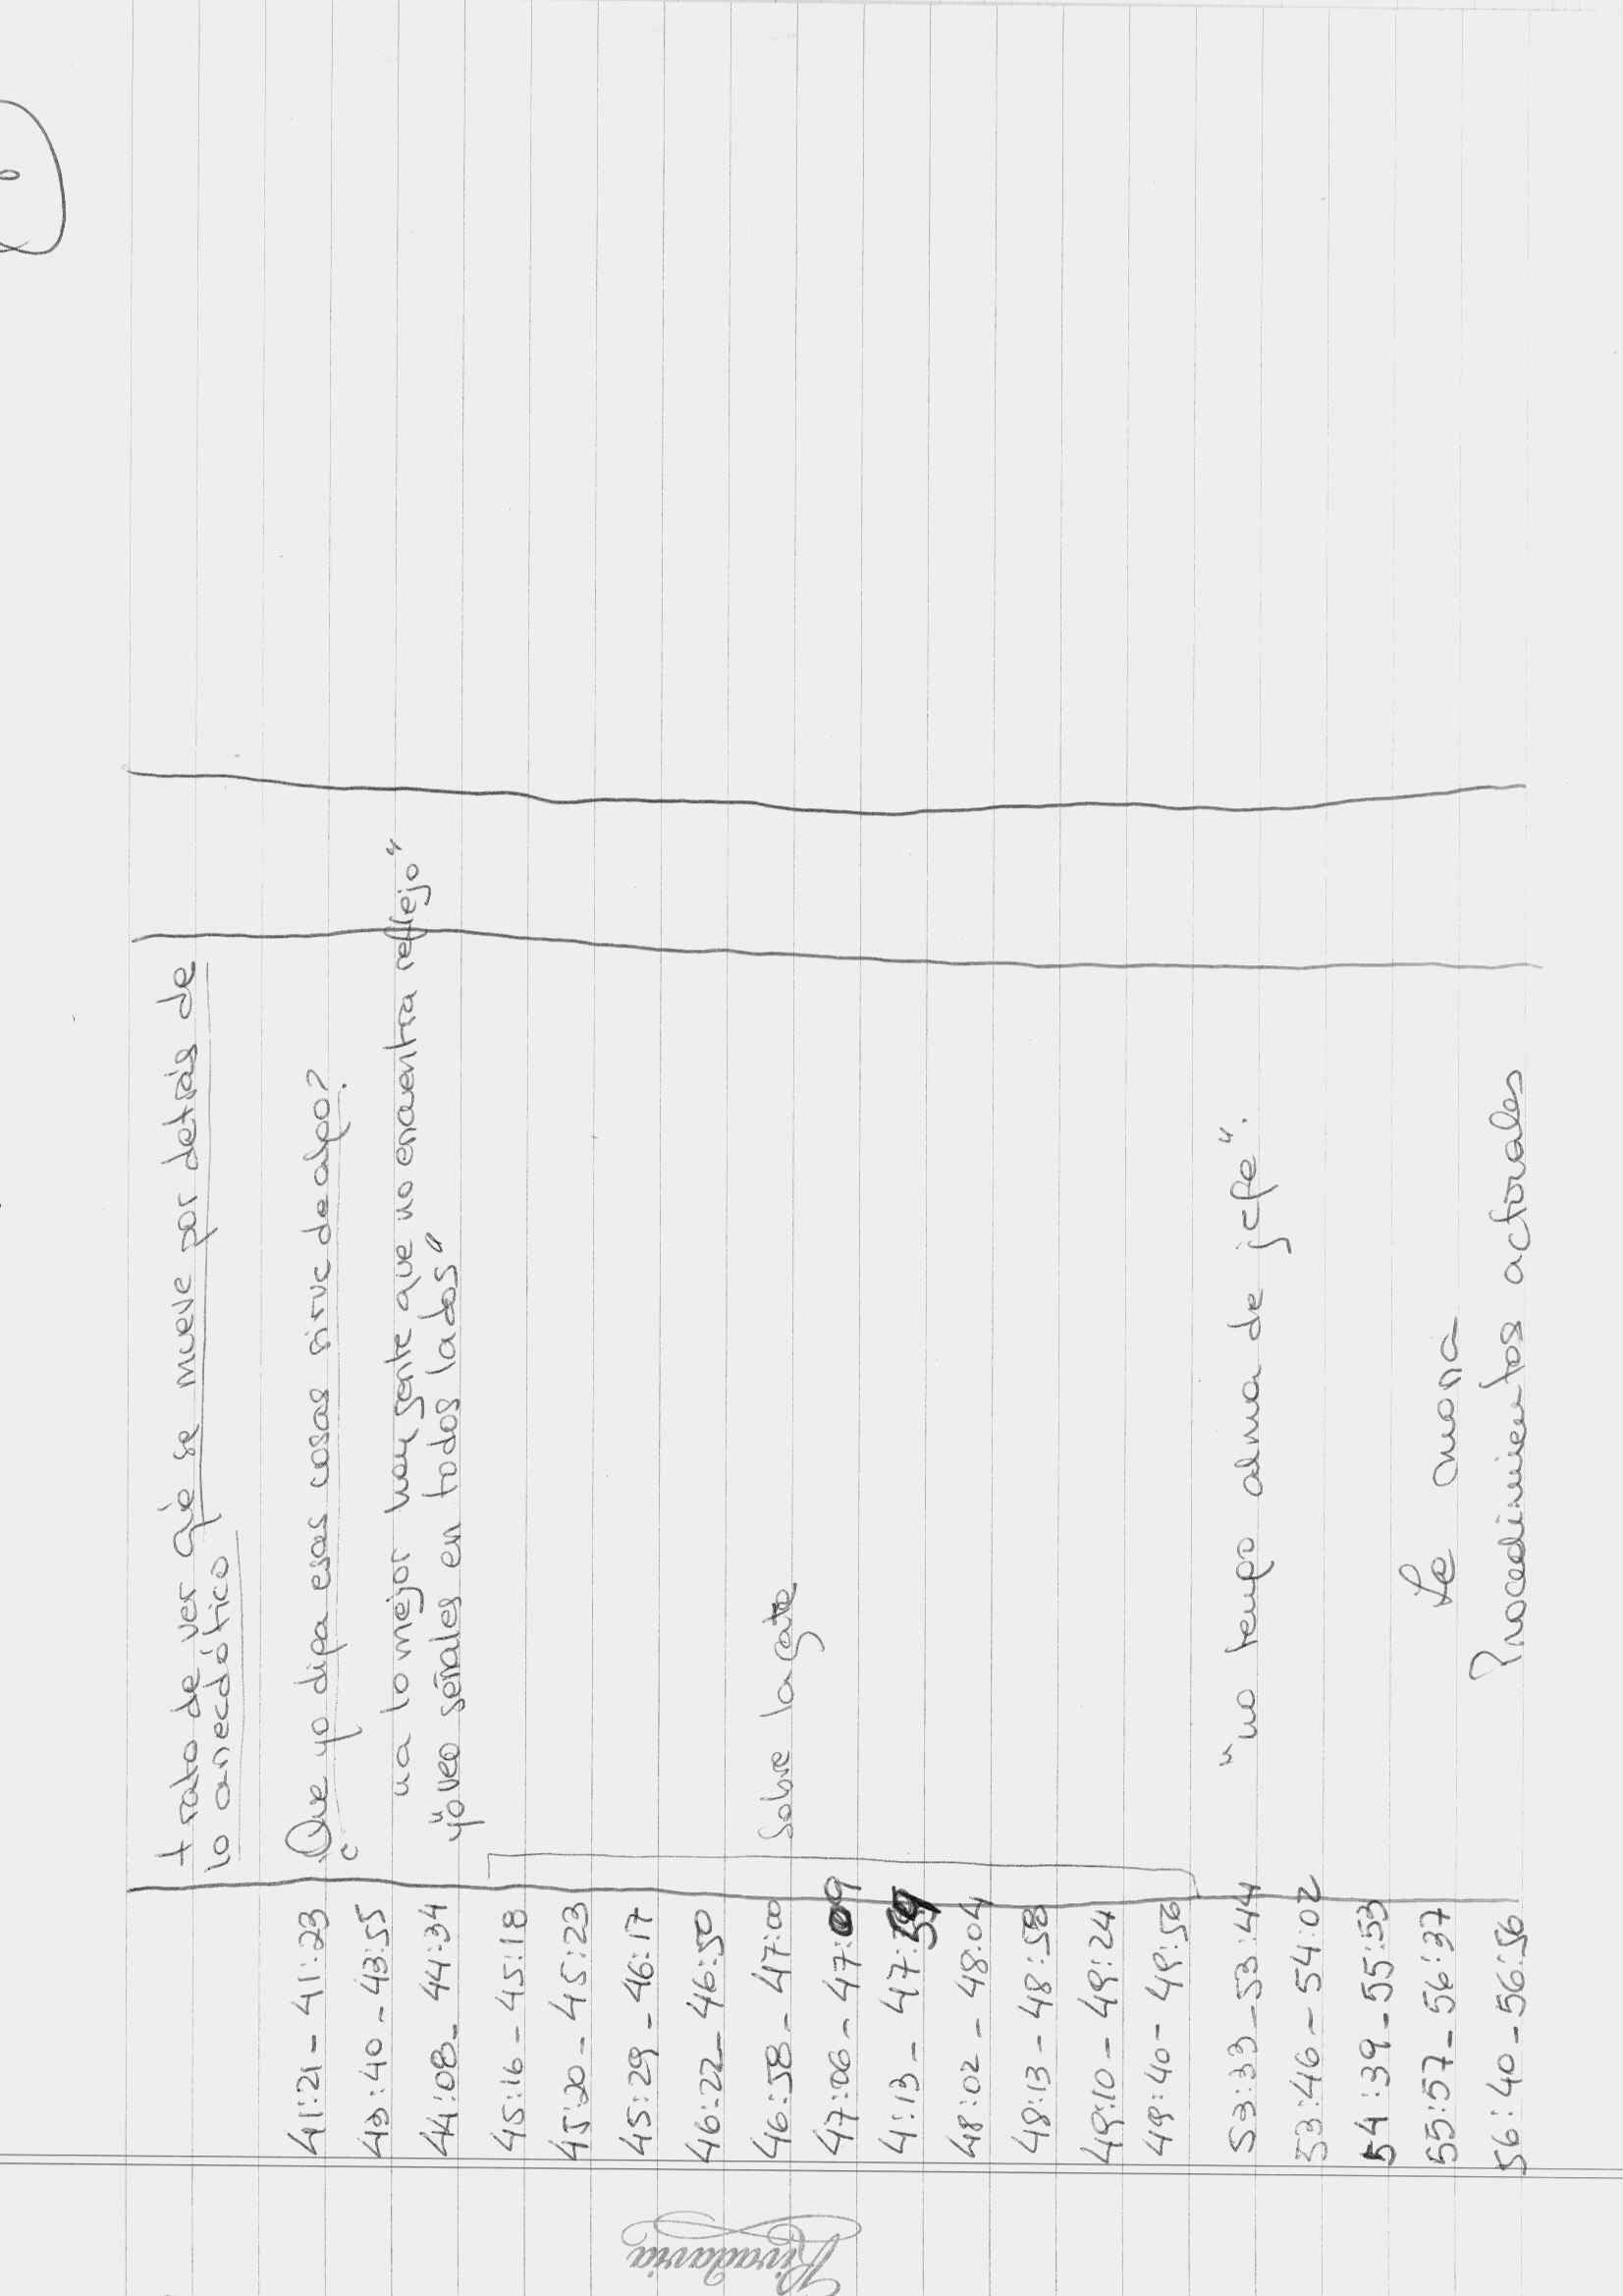 trato de ver qué se mueve por detrás de
lo anecdótico
41:21 - 41:23 ¿Que yo diga esas cosas sirve de algo?
43:40 - 43:55 "a lo mejor hay gente que no encuentra reflejo"
44:08 - 44:34 yo "veo señales en todos lados"
45:16 - 45:18
45:20 - 45:23
45:29 - 46:17
46:22 - 46:50
46:58 - 47:00 Sobre la gata
47:06 - 47:09
4:13 - 47:59
48:02 - 48:04
48:13 - 48:58
49:10 - 49:24
49:40 - 49:56
53:33 - 53:44 "no tengo alma de jefe".
53:46 - 54:02
54:39 - 55:53
55:57 - 56:37 La mona
56:40 - 56:56 Procedimientos actorales
Rivadavia